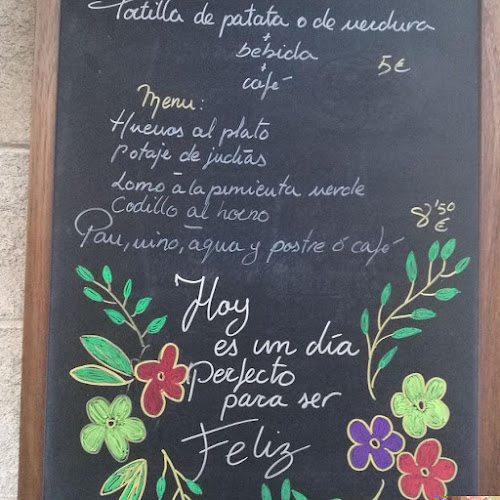 Tortilla de patata o de verdura
+
bebida
+
café
5€
Menu:
Huevos al plato
Potaje de judías
Lomo a la pimienta verde
Codillo al horno
8'50
€
Pan, vino, agua y postre ó café
Hoy
es un día
perfecto
para ser
Feliz